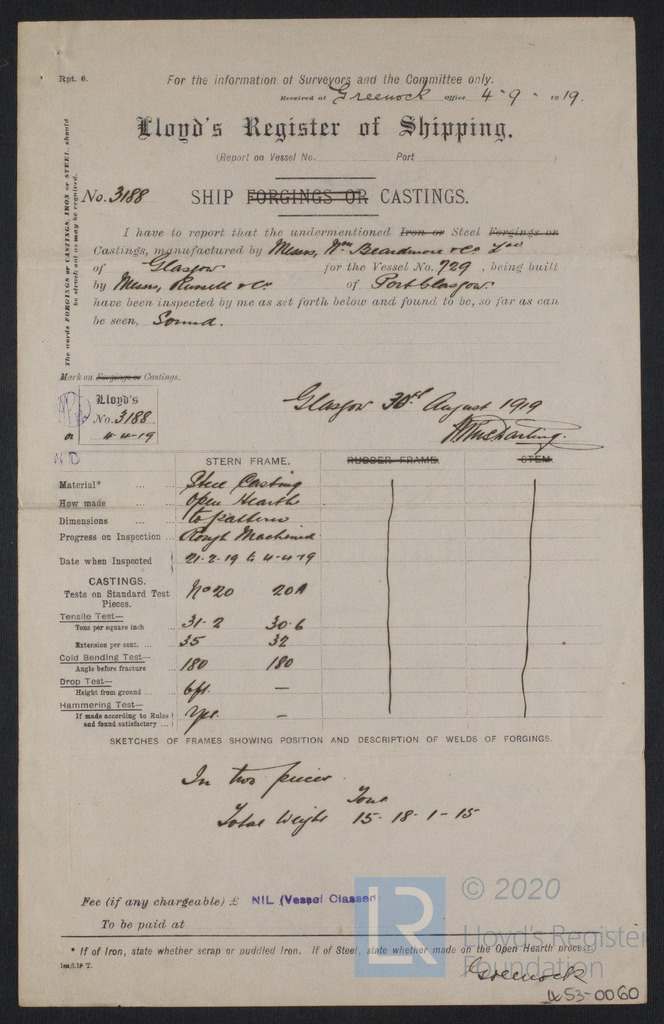 Rpt. 6.
For the information of Surveyors and the Committee only.
Received at Greenock Office 4·9· 1919.
Lloyd's Register of Shipping.
(Report on Vessel No. Port )
No. 3188 SHIP FORGINGS OR CASTINGS.
The words FORGINGS or CASTINGS, IRON or STEEL, should
be struck out as may be required.
I have to report that the undermentioned Iron or Steel Forgings or
Castings, manufactured by Messrs, Wm Beardmore & Co
of Glasgow for the Vessel No. 729, being built
by Messrs, Russell & Co. of Port Glasgow.
have been inspected by me as set forth below and found to be, so far as can
be seen, Sound.
Mark on Forgings or Castings.
Lloyd's
No. 3188
4-4-19
Glasgow 30th August 1919
STERN FRAME. RUDDER FRAME. STEM.
Material* ... ... Steel Casting
How made ... ... Open Hearth
Dimensions ... ... to pattern
Progress on Inspection ... Rough Machined
Date when Inspected 21-2-19 to 4-4-19
CASTINGS.
Tests on Standard Test
Pieces.
No 20 20A
Tensile Test—
Tons per square inch 31·2 30·6
Extension per cent. ... 35 32
Cold Bending Test—
Angle before fracture 180 180
Drop Test—
Height from ground ... 6ft. —
Hammering Test—
If made according to Rules
and found satisfactory ... Yes. —
SKETCHES OF FRAMES SHOWING POSITION AND DESCRIPTION OF WELDS OF FORGINGS.
In two pieces.
Tons
Total Weight 15-18-1-15
Fee (if any chargeable) £ NIL (Vessel Classed
To be paid at
* If of Iron, state whether scrap or puddled Iron. If of Steel, state whether made on the Open Hearth process.
Greenock
LR
© 2020
Lloyd's Register
Foundation
53-0060